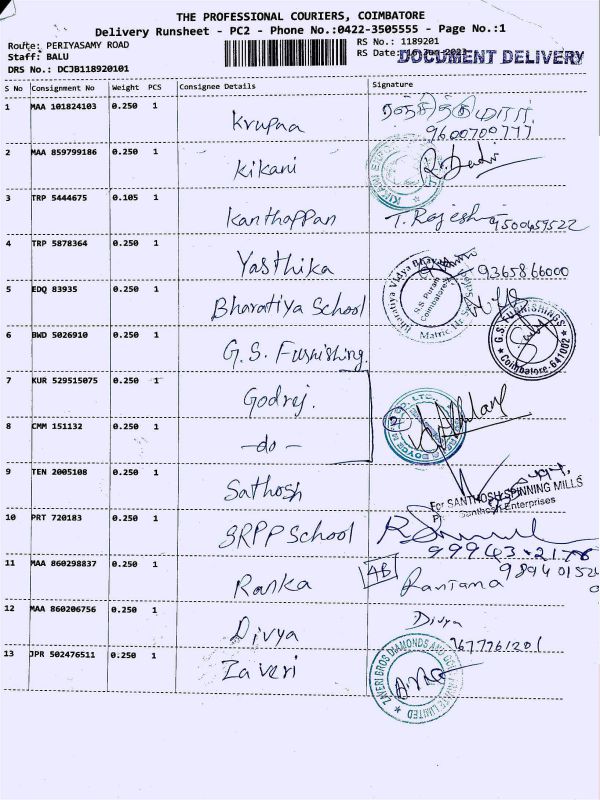 THE PROFESSIONAL COURIERS, COIMBATORE
Delivery Runsheet - PC2 - Phone No.:0422-3505555 - Page No.:1
Route: PERIYASAMY ROAD
RS No.: 1189201
Staff: BALU
RS Date: 16
DOCUMENT DELIVERY
DRS No.: DCJB118920101
S No Consignment No Weight PCS Consignee Details Signature
1 MAA 101824103 0.250 1 Krupaa
9600700777
2 MAA 859799186 0.250 1 Kikani
3 TRP 5444675 0.105 1 Kanthappan T. Rajesh 9500459522
4 TRP 5878364 0.250 1 Yasthika 9365866000
Bharatiya Vidya Bhavan
S.S. Puram
Coimbatore
Matric Hr
5 EDQ 83935 0.250 1 Bharatiya School
6 BWD 5026910 0.250 1 G.S. Furnishing.
G.S. FURNISHINGS
Coimbatore-641002
7 KUR 529515075 0.250 1 Godrej.
8 CMM 151132 0.250 1 -do-
9 TEN 2005108 0.250 1 Sathosh
For SANTHOSH SPINNING MILLS
Santhosh Enterprises
10 PRT 720183 0.250 1 SRPP School
11 MAA 860298837 0.250 1 Ranka 4B
12 MAA 860206756 0.250 1 Divya Divya
13 JPR 502476511 0.250 1 Zaveri
ZAVERI BROS DIAMONDS AND PRIVATE LIMITED